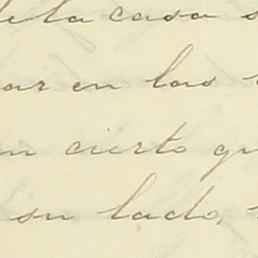 de la casa s
ar en las
n cierto qu
su lado,